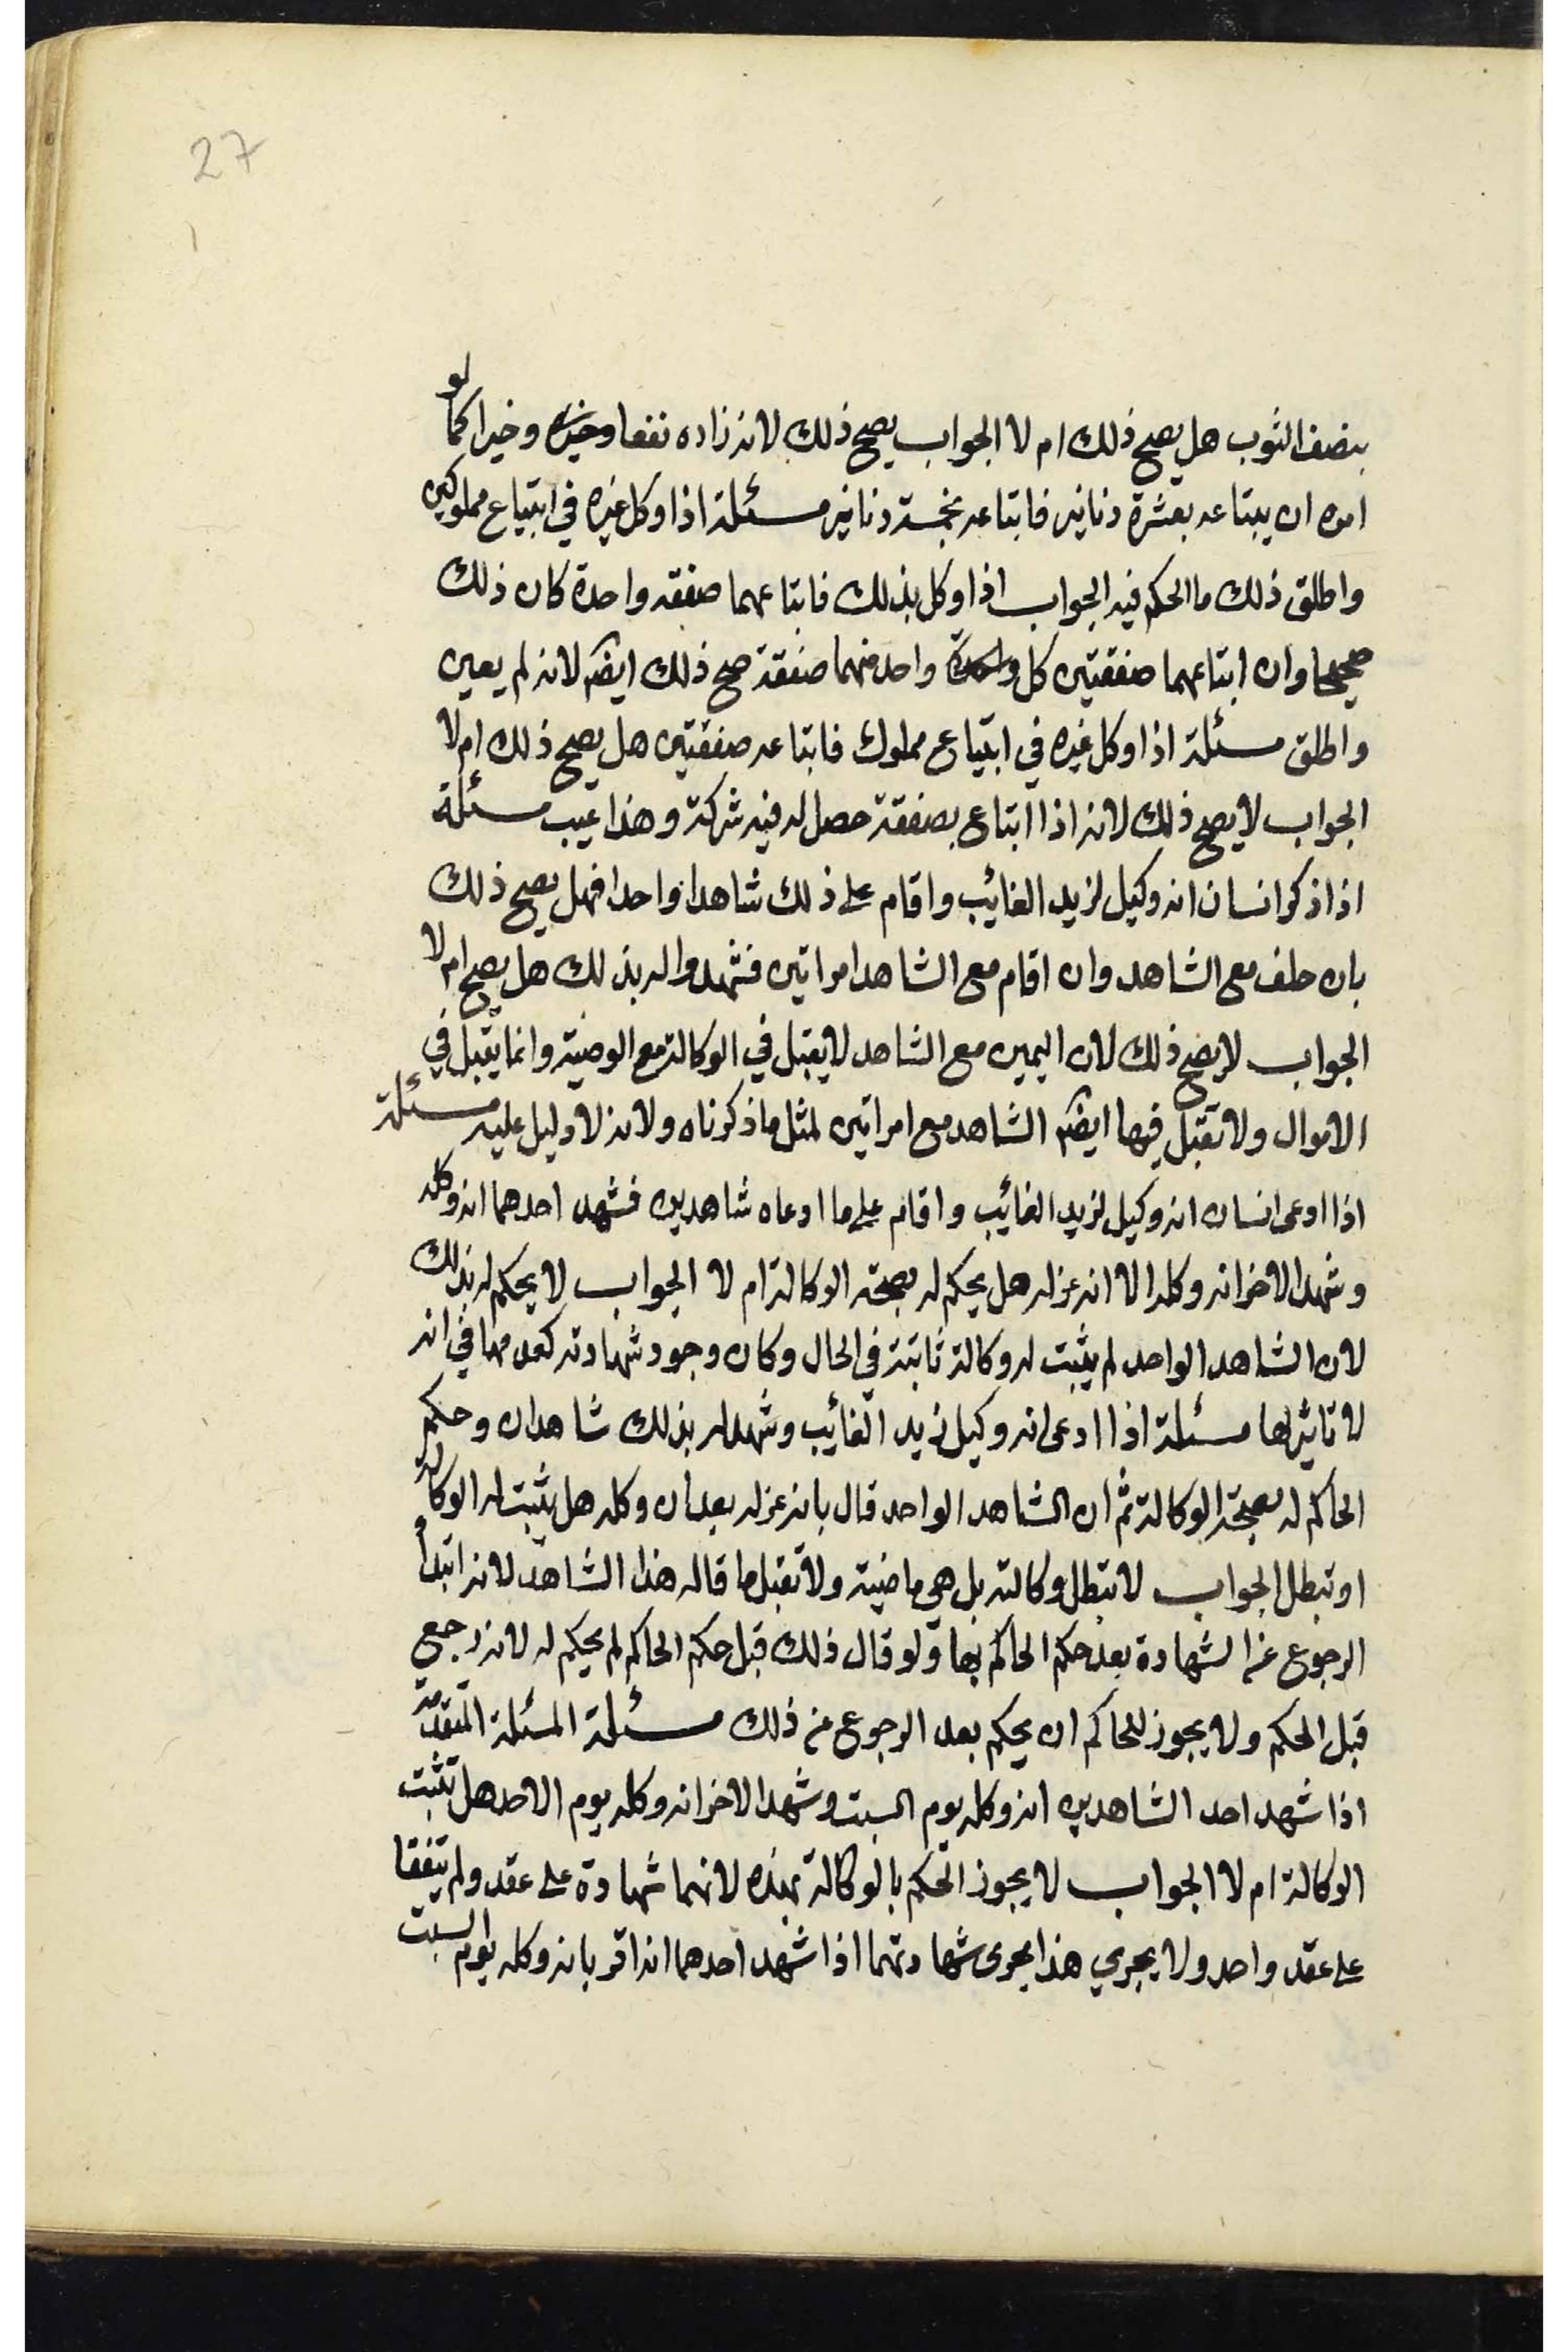 27
بنصف الثوب هل يصح ذلك ام لا الجواب يصح ذلك لانه زاده نفعا وخيره وخيرا كما لو
امره ان يبتاعه بعشرة دنانير فابتاعه بخمسة دنانير مسئلة اذا وكل غيره في ابتياع مملوكين
واطلق ذلك ما الحكم فيه الجواب اذا وكل بذلك فابتاعهما صفقه واحدة كان ذلك
صحيحا وان ابتاعهما صفقتين كل واحدة واحد منهما صفقة صح ذلك ايضم لانه لم يعين
واطلق مسئلة اذا وكل غيره في ابتياع مملوك فابتاعه صفقتين هل يصح ذلك ام لا
الجواب لا يصح ذلك لانه اذا ابتاع بصفقة حصل له فيه شركة وهذا عيب مسئلة
اذا ذكر انسان انه وكيل لزيد الغائب واقام على ذلك شاهدا واحدا فهل يصح ذلك
بان حلف مع الشاهد وان اقام مع الشاهد امراتين فشهدوا له بذلك هل يصح ام لا
الجواب لا يصح ذلك لان اليمين مع الشاهد لا يقبل في الوكالة مع الوصية وانما يقبل في
الاموال ولا تقبل فيها ايضم الشاهد مع امراتين لمثل ما ذكرناه ولانه لا دليل عليه مسئلة
اذا ادعى انسان انه وكيل لزيد الغائب واقام على ما ادعاه شاهدين فشهد احدهما انه وكله
وشهد الاخر انه وكله الا انه عزله هل يحكم له بصحة الوكالة ام لا الجواب لا يحكم له بذلك
لان الشاهد الواحد لم يثبت له وكالة ثابتة في الحال وكان وجود شهادته كعدمها في انه
لا تاثير لها مسئلة اذا ادعى انه وكيل زيد الغائب وشهد له بذلك شاهدان وحكم
الحاكم له بصحة الوكالة ثم ان الشاهد الواحد قال بانه عزله بعد ان وكله هل يثبت له الوكالة
او تبطل الجواب لا تبطل وكالته بل هي ماضية ولا تقبل ما قاله هذا الشاهد لانه ابتدأ
الرجوع عن الشهادة بعد حكم الحاكم بها ولو قال ذلك قبل حكم الحاكم لم يحكم له لانه رجع
قبل الحكم ولا يجوز للحاكم ان يحكم بعد الرجوع من ذلك مسئلة المسئلة المتقدمة
اذا شهد احد الشاهدين انه وكله يوم السبت وشهد الاخر انه وكله يوم الاحد هل تثبت
الوكالة ام لا الجواب لا يجوز الحكم بالوكالة بهذه لانهما شهادة على عقد ولم يتفقا
على عقد واحد ولا يجري هذا مجرى شهادتهما اذا شهد احدهما انه اقر بانه وكله يوم السبت